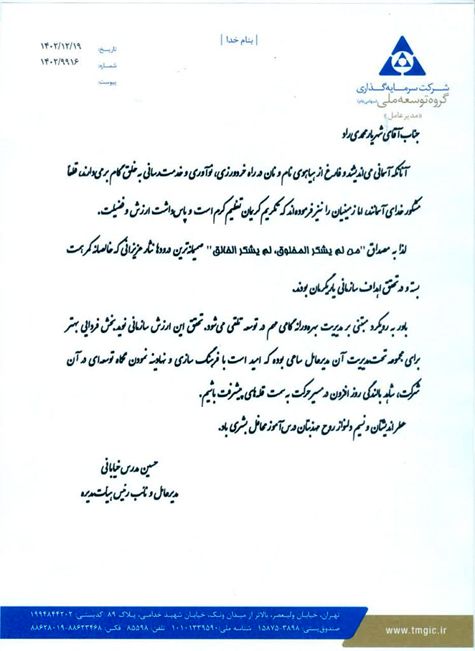 بنام خدا
تاریخ: ۱۴۰۲/۱۲/۱۹
شماره: ۱۴۰۲/۹۹۱۶
پیوست:
شرکت سرمایه‌گذاری
گروه توسعه ملی (سهامی عام)
«مدیرعامل»
جناب آقای شهریار محمدی راد
آنانکه آسمانی می‌اندیشند و فارغ از هیاهوی نام و نان در راه خردورزی، نوآوری و خدمت‌رسانی به خلق گام برمی‌دارند، قطعا
مشکور خدای آسمانند، اما زمینیان را نیز فرموده‌اند که تکریم کریمان تعظیم کرم است و پاس‌داشت ارزش و فضیلت.
لذا به مصداق "من لم یشکر المخلوق، لم یشکر الخالق" صمیمانه‌ترین درودها نثار عزیزانی که خالصانه کمر همت
بسته و در تحقق اهداف سازمانی یاریگرمان بودند.
باور به رویکرد مبتنی بر مدیریت بهره‌ورانه گامی مهم در توسعه تلقی می‌شود. تحقق این ارزش سازمانی نوید بخش فردایی بهتر
برای مجموعه تحت مدیریت آن مدیرعامل سامی بوده که امید است با فرهنگ سازی و نهادینه نمودن نگاه توسعه‌ای در آن
شرکت، شاهد بالندگی روز افزون در مسیر حرکت به سمت قله‌های پیشرفت باشیم.
عطر اندیشتان و نسیم دلنواز روح مهذبتان درس‌آموز محافل بشری باد.
حسین مدرس خیابانی
مدیرعامل و نائب رئیس هیات مدیره
تهران، خیابان ولیعصر، بالاتر از میدان ونک، خیابان شهید خدامی، پلاک ۸۹ کدپستی: ۱۹۹۴۸۴۴۳۰۲
صندوق پستی: ۳۸۹۸-۱۵۸۷۵ شناسه ملی: ۱۰۱۰۱۳۳۹۵۹۰ تلفن: ۸۵۵۹۸ فکس: ۸۸۶۲۳۴۶۸-۸۸۶۲۸۰۱۹
www.tmgic.ir